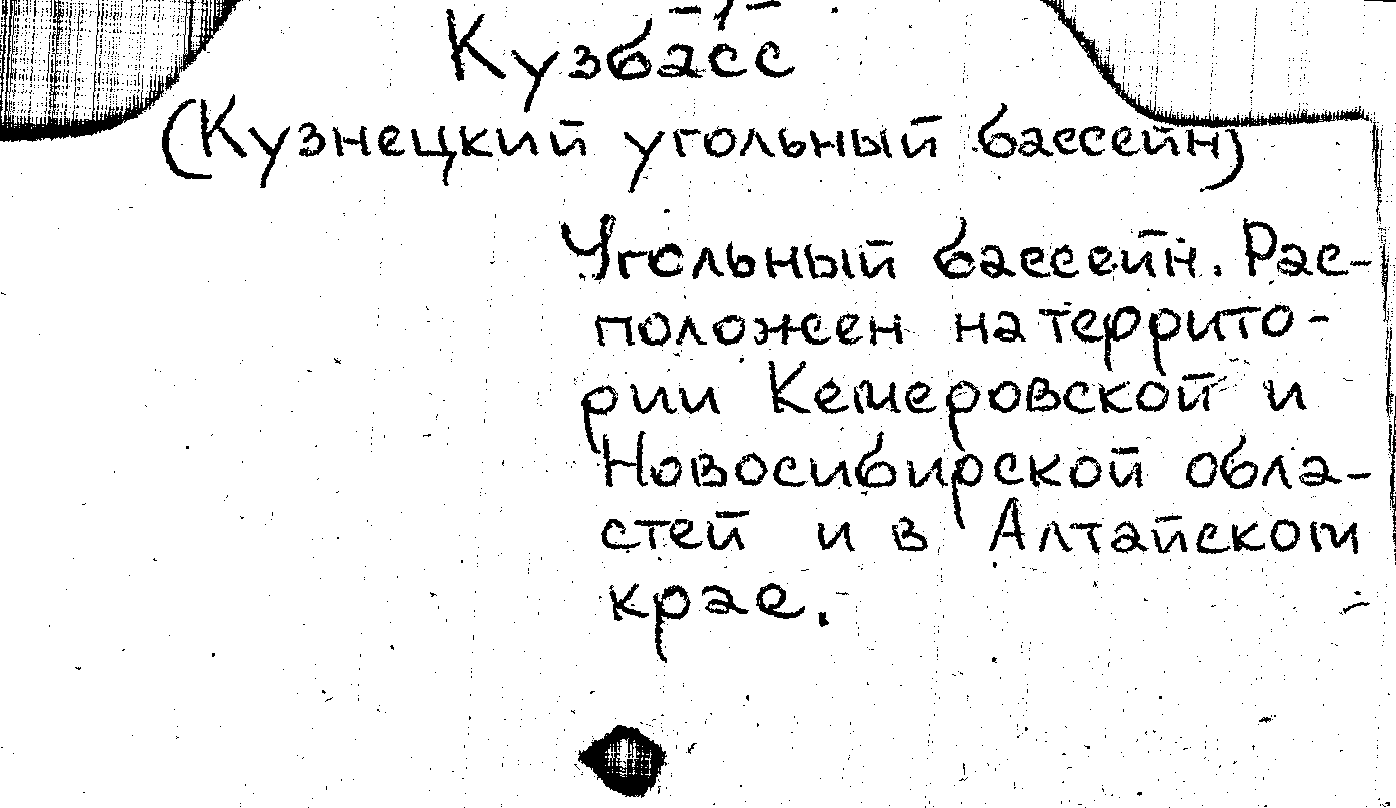 Кузбасс
(Кузнецкий угольный бассейн)
Угольный бассейн. Рас-
положен на террито-
рии Кемеровской и
Новосибирской обла-
стей и в Алтайском
крае.